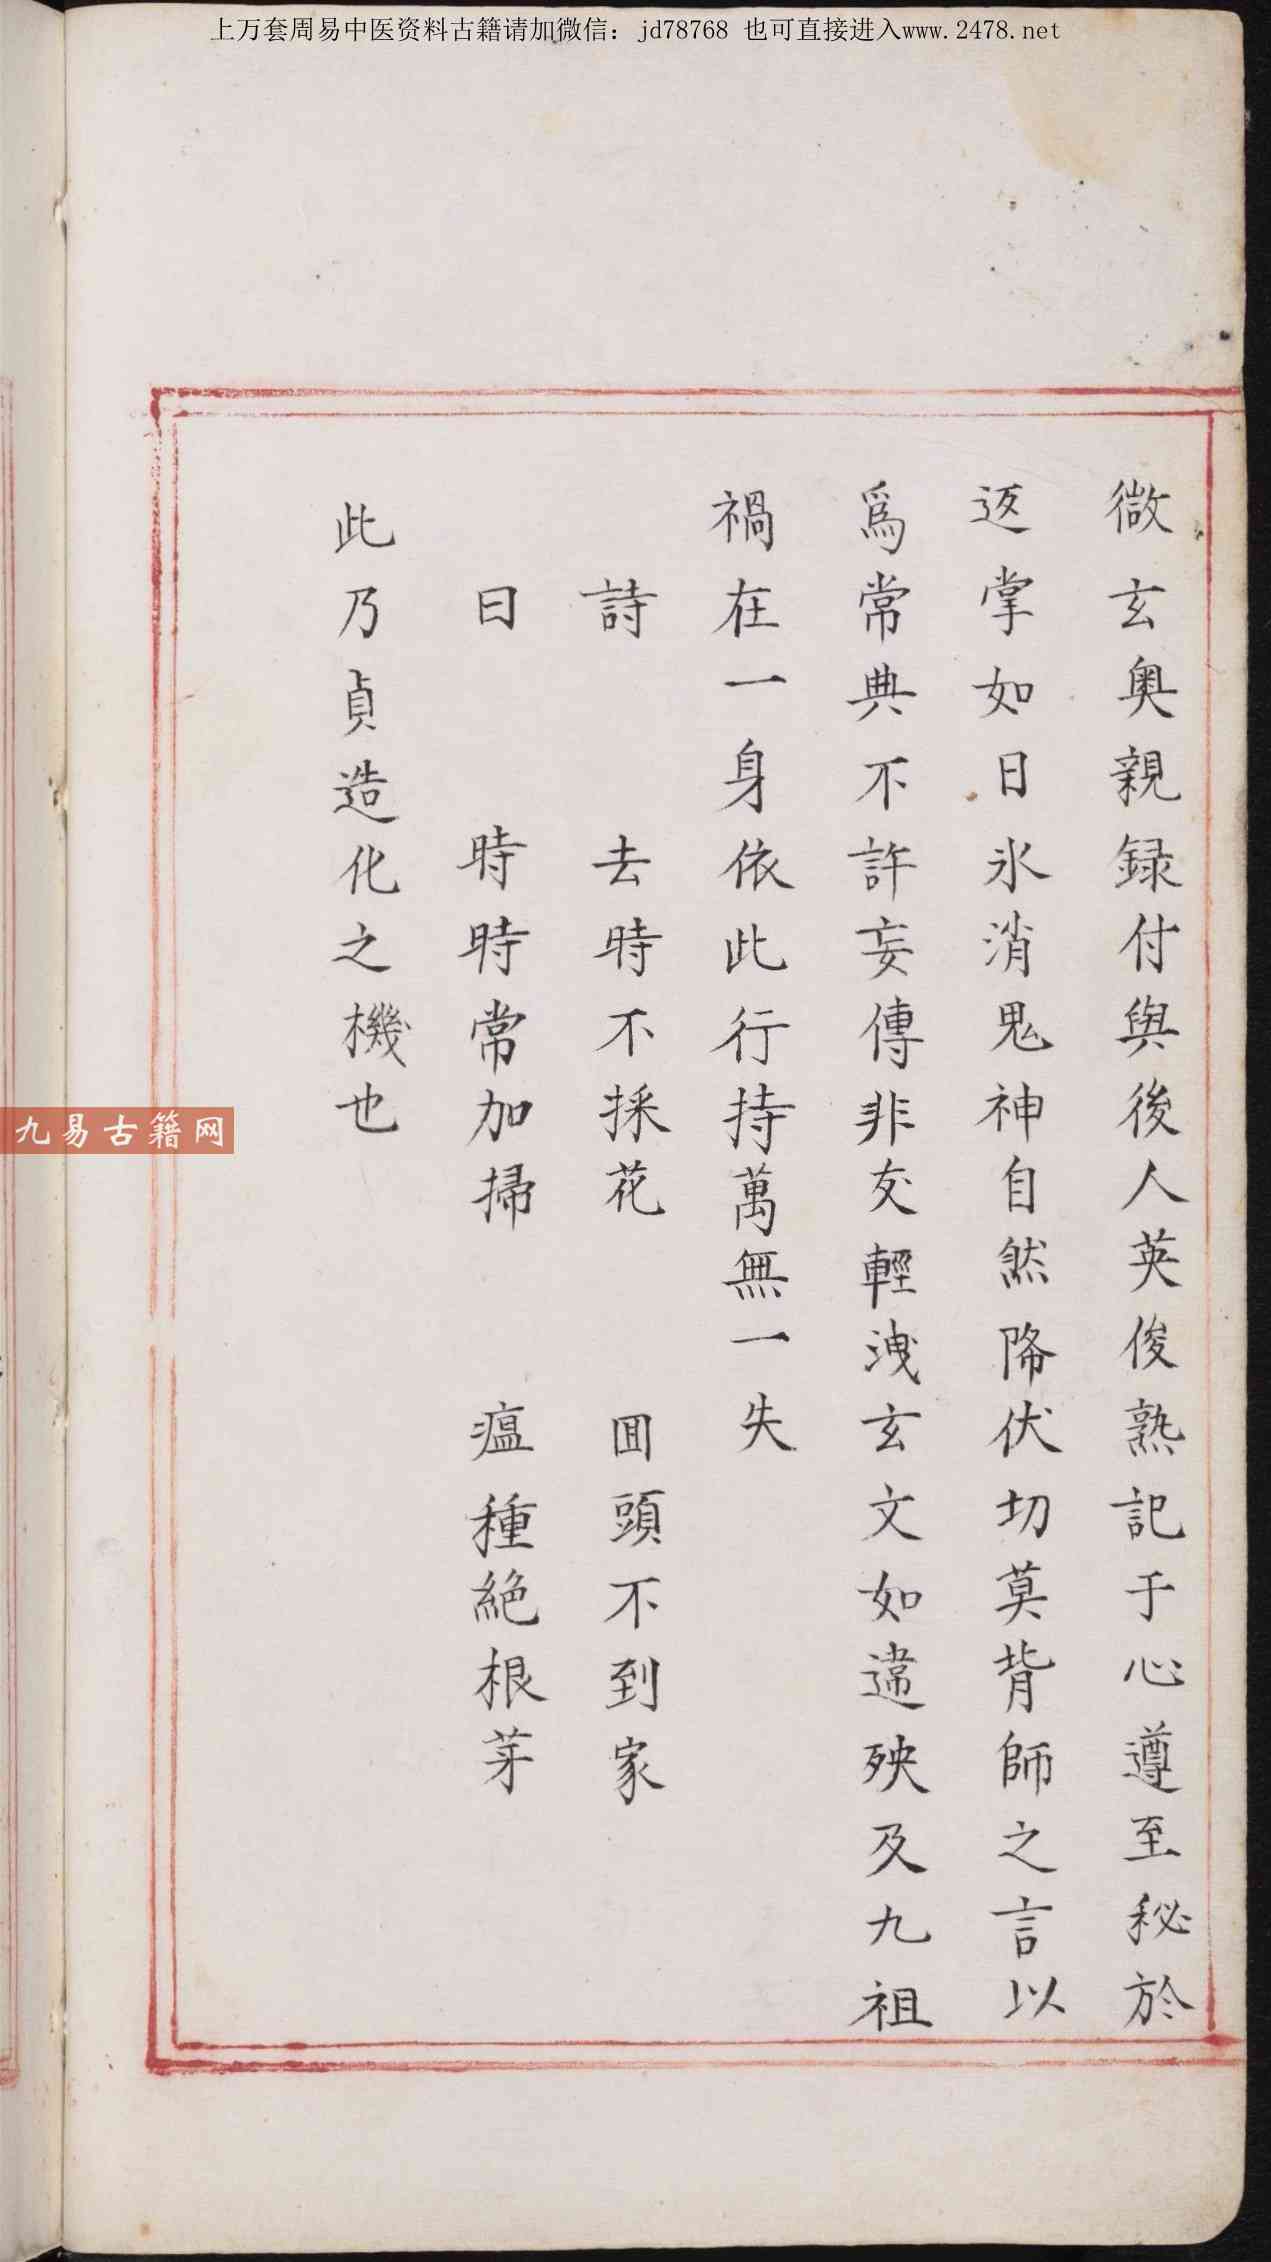 上万套周易中医资料古籍请加微信：jd78768 也可直接进入www.2478.net
微玄奧親録付與後人英俊熟記于心遵至秘於
返掌如日氷消鬼神自然降伏切莫背師之言以
爲常典不許妄傳非友輕洩玄文如違殃及九祖
禍在一身依此行持萬無一失
詩 去時不採花 囬頭不到家
曰 時時常加掃 瘟種絶根芽
此乃貞造化之機也
九易古籍网